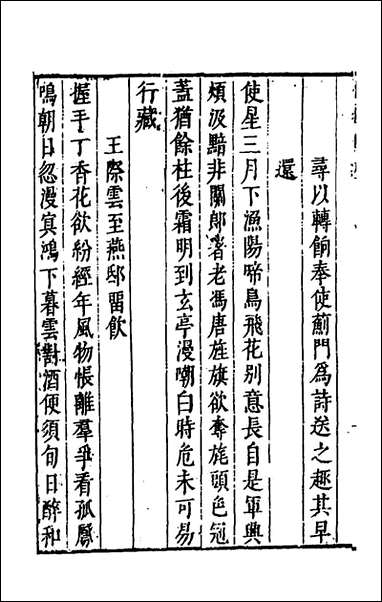 尋以轉餉奉使薊門爲詩送之趣其早
還
使星三月下漁陽啼鳥飛花别意長自是軍興
煩汲黯非關郎署老馮唐旌旗欲奪旄頭色冠
蓋猶餘柱後霜明到玄亭漫嘲白時危未可易
行藏
王際雲至燕邸留飲
握手丁香花欲紛經年風物帳離羣爭看孤鳳
鳴朝日忽漫㝠鴻下暮雲對酒便須旬日醉和